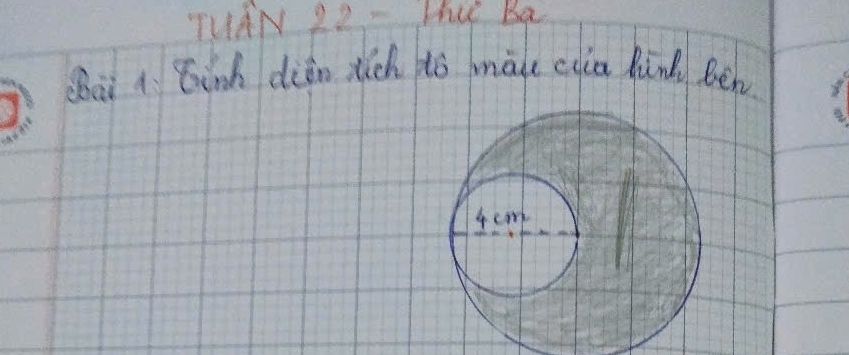 TUẦN 22 - Thứ Ba
Bài 1: Tính diện tích tô màu của hình bên.
4cm